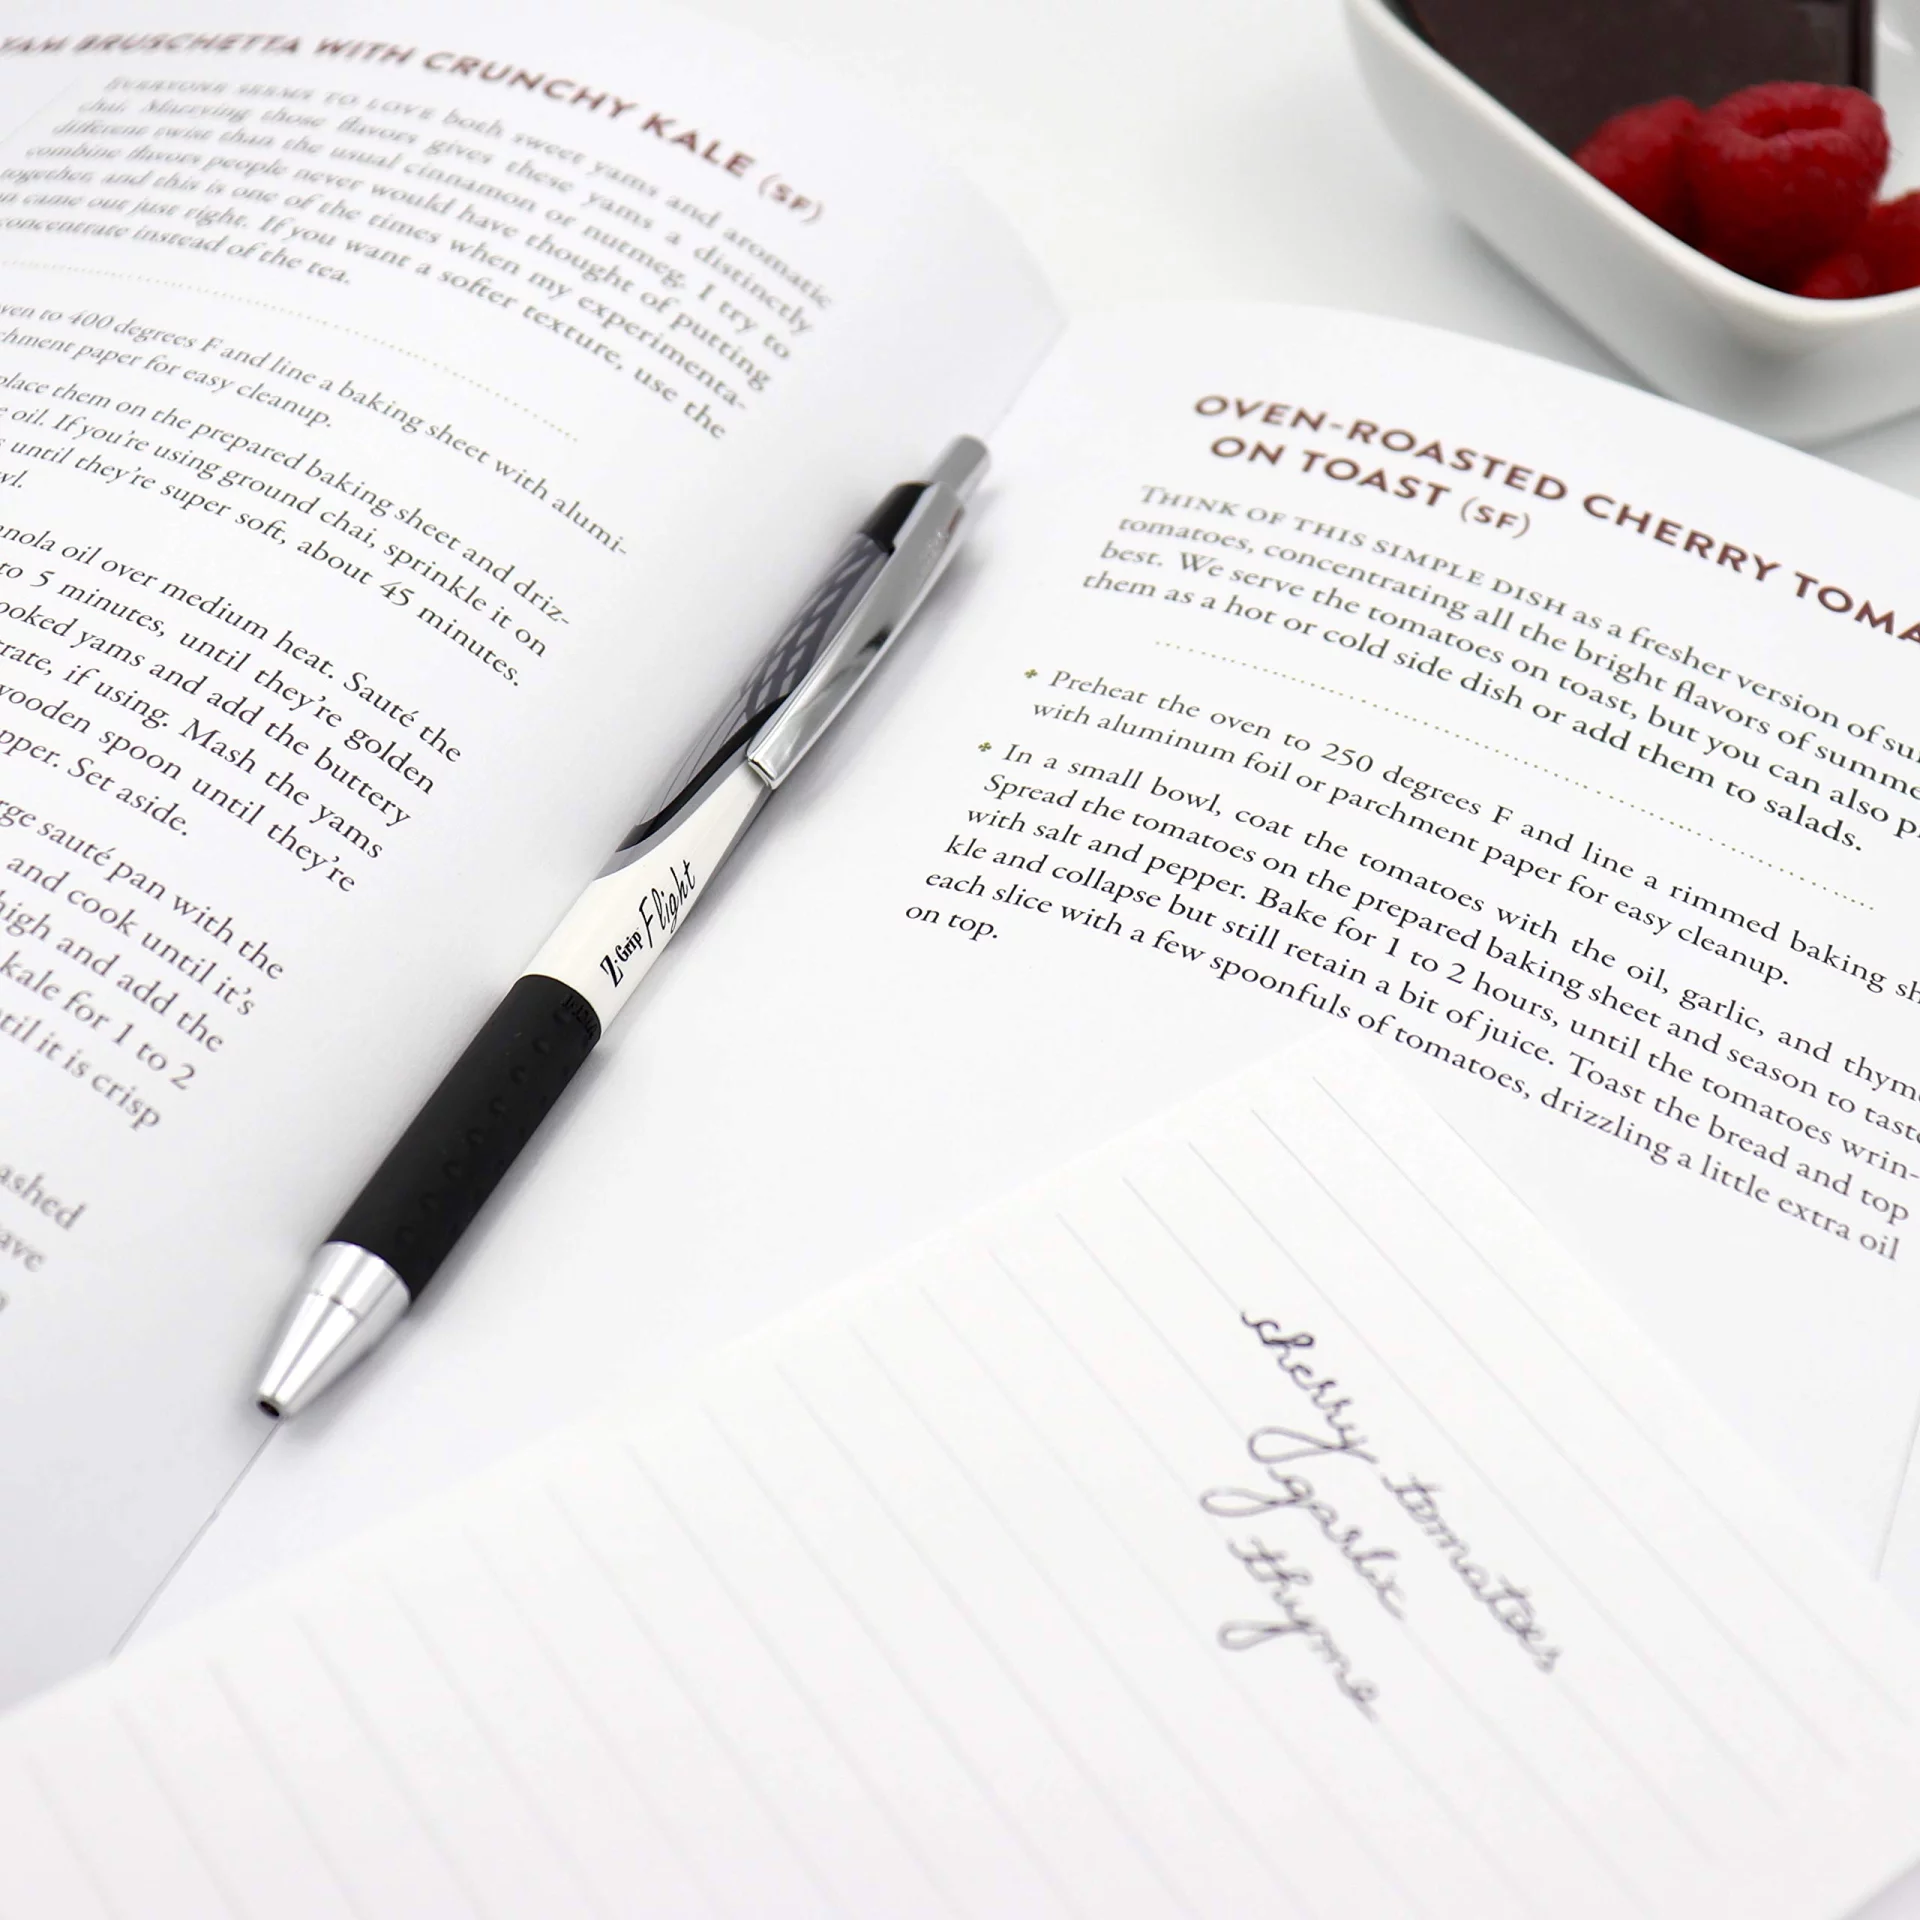 YAM BRUSCHETTA WITH CRUNCHY KALE (SF)
EVERYONE SEEMS TO LOVE both sweet yams and aromatic
chai. Marrying those flavors gives these yams a distinctly
different twist than the usual cinnamon or nutmeg. I try to
combine flavors people never would have thought of putting
together, and this is one of the times when my experimenta-
came out just right. If you want a softer texture, use the
concentrate instead of the tea.
to 400 degrees F and line a baking sheet with alumi-
paper for easy cleanup.
place them on the prepared baking sheet and driz-
oil. If you're using ground chai, sprinkle it on
until they're super soft, about 45 minutes.
oil over medium heat. Sauté the
to 5 minutes, until they're golden
yams and add the buttery
if using. Mash the yams
wooden spoon until they're
Set aside.
sauté pan with the
and cook until it's
high and add the
kale for 1 to 2
it is crisp
Z-Grip Flight
OVEN-ROASTED CHERRY
ON TOAST (SF)
THINK OF THIS SIMPLE DISH as a fresher version of
tomatoes, concentrating all the bright flavors of
best. We serve the tomatoes on toast, but you can also
them as a hot or cold side dish or add them to salads.
Preheat the oven to 250 degrees F and line a rimmed baking
with aluminum foil or parchment paper for easy cleanup.
In a small bowl, coat the tomatoes with the oil, garlic, and
Spread the tomatoes on the prepared baking sheet and season to
with salt and pepper. Bake for 1 to 2 hours, until the tomatoes wrin-
kle and collapse but still retain a bit of juice. Toast the bread and top
each slice with a few spoonfuls of tomatoes, drizzling a little extra oil
on top.
cherry tomatoes
garlic
thyme